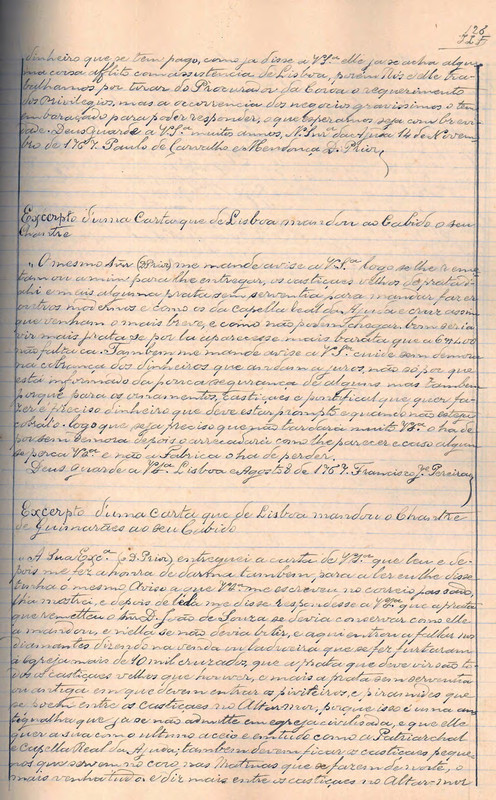 128
dinheiro que se tem pago, como ja disse a VSra elle ja se acha algu-
ma coisa afflito com assistencia de Lisboa, porem Nós e elle tra-
balhamos por tirar do Procurador da Coroa o requerimento
dos Privilegios, mas a occorrencia dos negocios gravissimos o tem
embaraçado para poder responder, o que esperamos seja com brevi-
dade. Deus Guarde a VSra muitos annos, Nª Snrª da Ajuda 14 de Novem-
bro de 1767. Paulo de Carvalho e Mendonça D. Prior
Excerpto d'uma Carta que de Lisboa mandou ao Cabido o seu
Chantre
"O mesmo Snr (D. Prior) me manda avise a VSra logo se lhe reme-
tam ou a mim para lhe entregar, os castiçaes velhos de prata d'
ahi e mais alguma prata sem serventia para mandar fazer
outros modernos e como os da capella real da Ajuda e cruz assim
que venham o mais breve, e como não podem chegar bem será
vir mais prata se por lá aparecesse mais barata que a 6400
não fabrica. Tambem me manda avise a VSra cuide sem demora
na cobrança dos dinheiros que andam a juros, não só por que
está informado da pouca segurança de alguns mas tambem
porque para os ornamentos, castiçaes e pontifical que quer fa-
zer é preciso dinheiro que deve estar prompto e quando não esteja
cobral-o logo que seja preciso que não tardará muito VSra o ha de
por sem demora depois o arrecadará como lhe parecer e caso algum
se perca VSra e não a Fabrica o ha de perder.
Deus Guarde a VSra Lisboa e Agosto 8 de 1767. Francisco Je Pereira
Excerpto d'uma carta que de Lisboa mandou o Chantre
de Guimarães ao seu Cabido
"A Sua Exca (o D. Prior) entreguei a carta de VSra que leu e de-
pois me fez a honra de dar-ma tambem, para a ler eu lhe disse
tinha o mesmo Aviso e que VSra me escreveu no correio passado,
lha mostrei, e depois de lida me disse respondesse a VSra que a prata
que remetteu o Snr D. João de Souza se devia conservar como elle
a mandou, e n'ella se não devia bulir, e aqui entrou a fallar nos
diamantes dizendo na venda ou ladroeira que se fez furtaram
á Egreja mais de 40 mil cruzados, que a prata que deve vir são to-
dos os castiçaes velhos que houver, e mais a prata sem serventia
ou antiga em que devem entrar os piviteiros, e piramides que
se põem entre os castiçaes no Altar-mor, porque isso é uma an-
tigualha que ja se não admitte em egreja civilisada, e que elle
quer a sua com o ultimo aceio e em tudo como a Patriarchal
e Capella Real da Ajuda; tambem devem ficar os castiçaes peque-
nos que servem no coro, nas Matinas que se fazem de noite, o
mais venha tudo e diz mais entre os castiçaes no Altar-mor